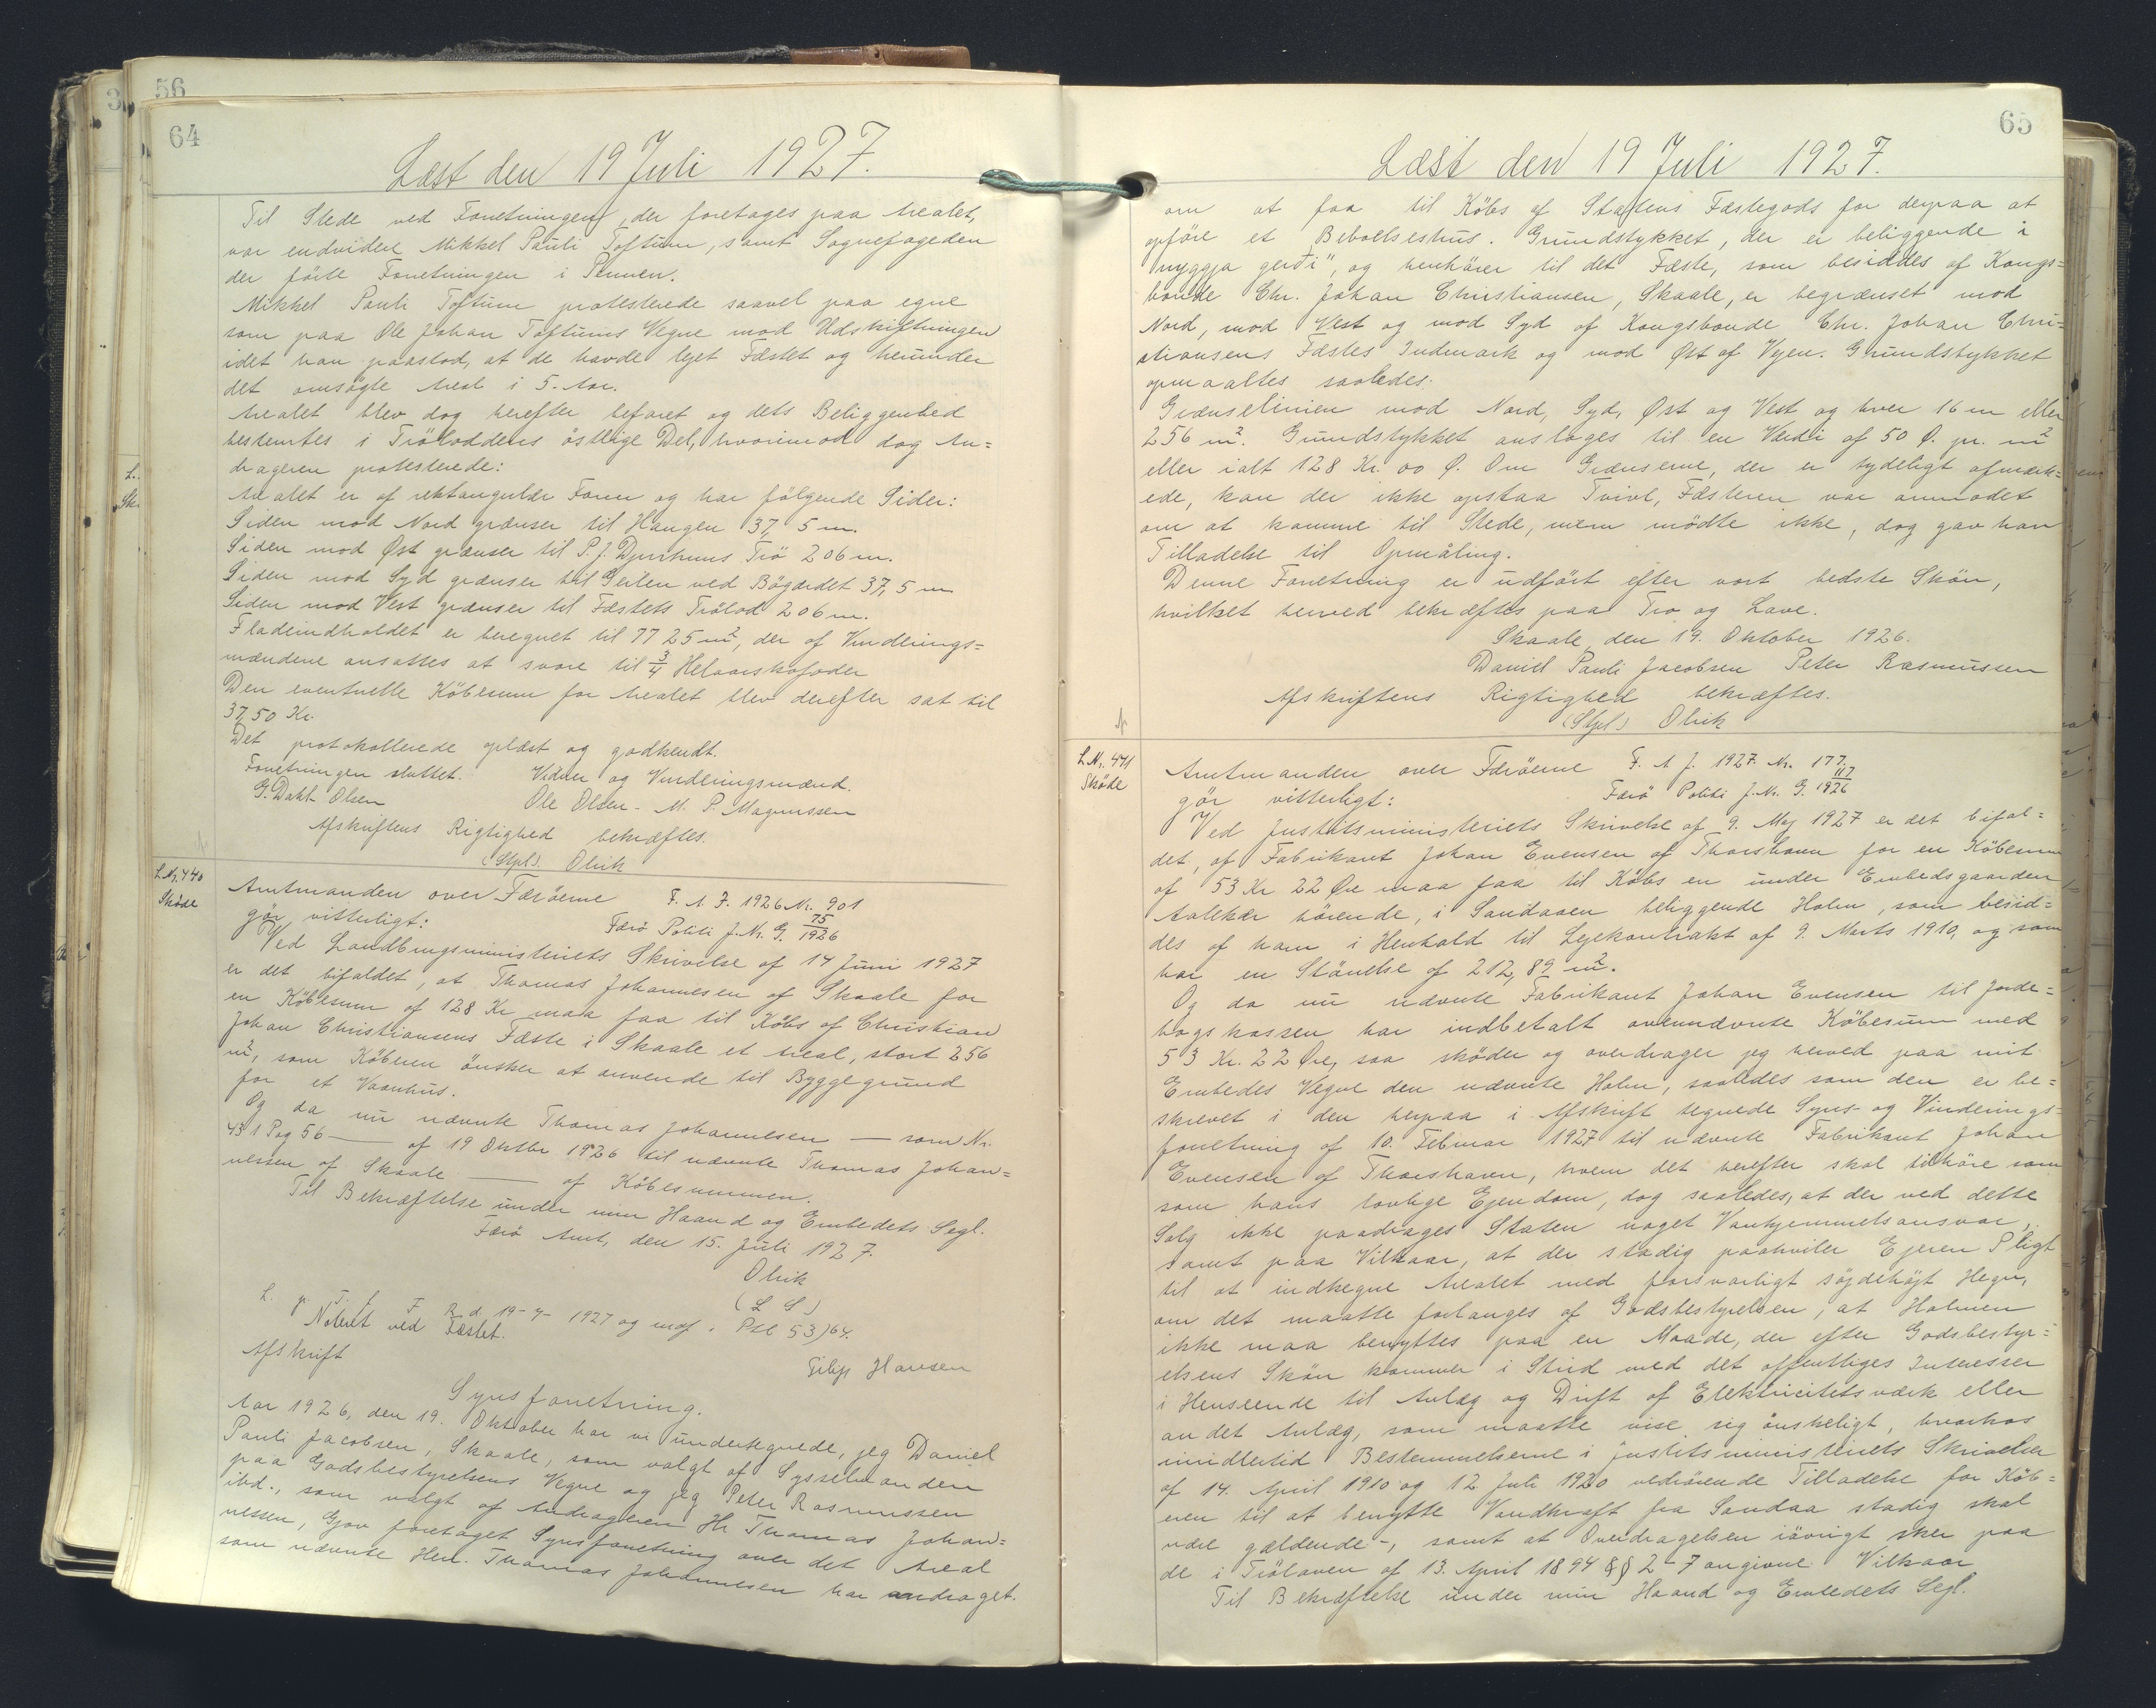 56
64
Læst den 19 Juli 1927.
Til Stede ved Forretningen, der foretages paa Arealet,
var endvidere Mikkel Pauli Toftum, samt Sognefogeden
der förte Forretningen i Pennen.
Mikkel Pauli Toftum protesterede saavel paa egne
som paa Ole Johan Toftums Vegne mod Udskiftningen
idet han paastod, at de havde lejet Fæstet og herunder
det omsögte Areal i 5. Aar.
Arealet blev dog herefter befaret og dets Beliggenhed
bestemtes i Trölöddens östlige Del, hvorimod dog An=
drageren protesterede:
Arealet er af rektangulær Form og har fölgende Sider:
Siden mod Nord grænser til Haugen 37,5 m.
Siden mod Øst grænser til P. J. Djurhuus Trö 206 m.
Siden mod Syd grænser til Geilen ved Bögærdet 37,5 m
Siden mod Vest grænser til Fæstets Trölod 206 m.
Fladeindholdet er beregnet til 7725 m², der af Vurderings=
mændene ansattes at svare til 3/4 Helaarskofoder
Den eventuelle Köbesum for Arealet blev derefter sat til
37,50 Kr.
Det protokollerede oplæst og godkendt.
Forretningen sluttet. Vidner og Vurderingsmænd.
G. Dahl-Olsen Ole Olsen - M. P. Magnussen
Afskriftens Rigtighed bekræftes.
(Stpl). Olrik
L Nr. 440
Sköde
Amtmanden over Færöerne F. A. J. 1926 Nr. 901
gör vitterligt: Færö Politi J. Nr. G. 75/1926
Ved Landbrugsministeriets Skrivelse af 14 Juni 1927
er det bifaldet, at Thomas Johannesen af Skaale for
en Köbesum af 128 Kr maa faa til Köbs af Christian
Johan Christiansens Fæste i Skaale et Areal, stort 256
m², som Köberen önsker at anvende til Byggegrund
for et Vaanhus.
Og da nu nævnte Thomas Johannesen — som Nr.
431 Pag 56 — af 19 Oktbr 1926 til nævnte Thomas Johan=
nessen af Skaale — af Köbesummen.
Til Bekræftelse under min Haand og Embedets Segl.
Færö Amt, den 15. Juli 1927.
Olrik
(L S)
L. p. T. f. F. R. d. 19-7- 1927 og indf. i Ptl 53) 64.
Noteret ved Fæstet.
Filip Hansen
Afskrift
Synsforretning.
Aar 1926, den 19. Oktober har vi undertegnede, jeg Daniel
Pauli Jacobsen, Skaale, som valgt af Sysselmanden
paa Godsbestyrelsens Vegne og jeg Peter Rasmussen
ibd., som valgt af Andrageren Hr. Thomas Johan=
nessen, Gjov foretaget Synsforretning over det Areal
som nævnte Herr. Thomas Johannesen har andraget.
65
Læst den 19 Juli 1927.
om at faa til Köbs af Statens Fæstegods for derpaa at
opföre et Beboelseshus. Grundstykket, der er beliggende i
"nyggja gerði", og henhörer til det Fæste, som besiddes af Kongs=
bonde Chr. Johan Christiansen, Skaale, er begrænset mod
Nord, mod Vest og mod Syd af Kongsbonde Chr. Johan Chri=
stiansens Fæstes Indmark og mod Øst af Vejen. Grundstykket
opmaaltes saaledes:
Grænselinien mod Nord, Syd, Øst og Vest og hver 16 m eller
256 m². Grundstykket ansloges til en Værdi af 50 Ø. pr. m²
eller ialt 128 Kr. 00 Ø. Om Grænserne, der er tydeligt afmærk=
ede, kan der ikke opstaa Tvivl, Fæsteren var anmodet
om at komme til Stede, men mödte ikke, dog gav han
Tilladelse til Opmåling.
Denne Forretning er udfört efter vort bedste Skön,
hvilket herved bekræftes paa Tro og Love.
Skaale, den 19. Oktober 1926.
Daniel Pauli Jacobsen Peter Rasmussen
Afskriftens Rigtighed bekræftes.
(Stpl) Olrik
L. Nr. 441
Sköde
Amtmanden over Færöerne F. A. J. 1927. Nr. 177.
gör vitterligt: Færö Politi J. Nr. G. 117/1926
Ved Justitsministeriets Skrivelse af 9. Maj 1927 er det bifal=
det, at Fabrikant Johan Evensen af Thorshavn for en Köbesum
af 53 Kr 22 Øre maa faa til Köbs en under Embedsgaarden
Aalekær hörende, i Sandaaen beliggende Holm, som besid=
des af ham i Henhold til Lejekontrakt af 9. Marts 1910, og som
har en Störrelse af 212,89 m².
Og da nu nævnte Fabrikant Johan Evensen til Jorde=
bogskassen har indbetalt ovennævnte Köbesum med
53 Kr. 22 Øre, saa sköder og overdrager jeg herved paa mit
Embedes Vegne den nævnte Holm, saaledes som den er be=
skrevet i den herpaa i Afskrift tegnede Syns- og Vurderings-
forretning af 10. Februar 1927 til nævnte Fabrikant Johan
Evensen af Thorshavn, hvem det herefter skal tilhöre som
som hans lovlige Ejendom, dog saaledes, at der ved dette
Salg ikke paadrages Staten noget Vanhjemmelsansvar,
samt paa Vilkaar, at der stadig paahviler Ejeren Pligt
til at indhegne Arealet med forsvarligt söjdehöjt Hegn,
om det maatte forlanges af Godsbestyrelsen, at Holmen
ikke maa benyttes paa en Maade, der efter Godsbestyr=
elsens Skön kommer i Strid med det offentliges Interesser
i Henseende til Anlæg og Drift af Elektricitetsværk eller
andet Anlæg, som maatte vise sig önskeligt, hvorhos
imidlertid Bestemmelserne i Justitsministeriets Skrivelser
af 14. April 1910 og 12 Juli 1920 vedrörende Tilladelse for Köb=
eren til at benytte Vandkraft fra Sandaa stadig skal
være gældende -, samt at Overdragelsen iövrigt sker paa
de i Trölaven af 13. April 1894 §§ 2-7 angivne Vilkaar
Til Bekræftelse under min Haand og Embedets Segl.